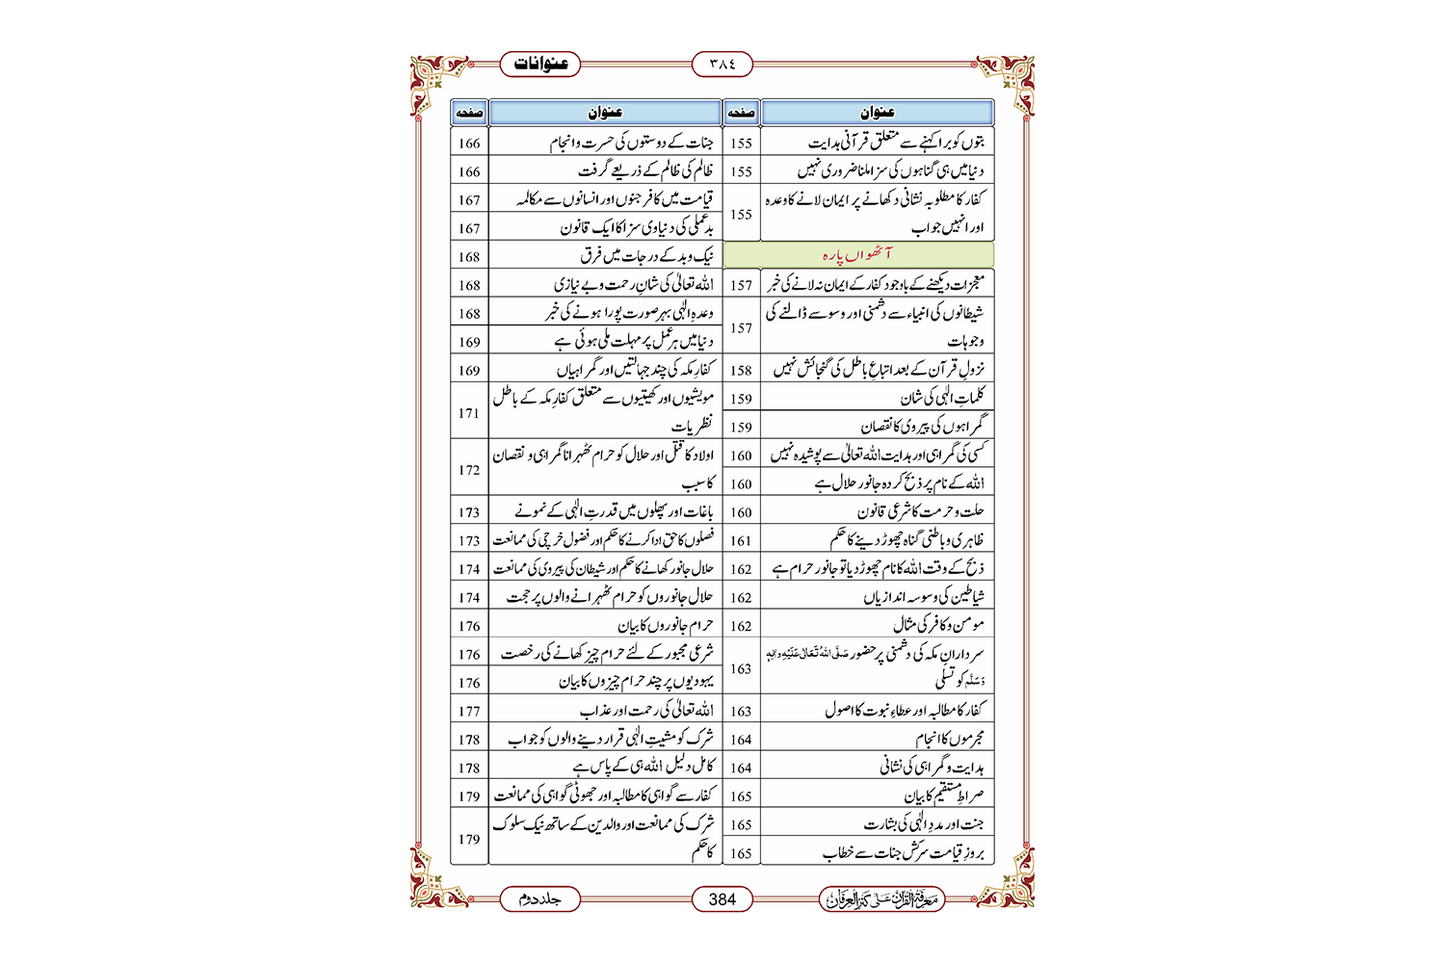 عنوانات
٣٨٤
عنوان صفحہ
بتوں کو برا کہنے سے متعلق قرآنی ہدایت 155
دنیا میں ہی گناہوں کی سزا ملنا ضروری نہیں 155
کفار کا مطلوبہ نشانی دکھانے پر ایمان لانے کا وعدہ
اور انہیں جواب 155
آٹھواں پارہ
معجزات دیکھنے کے باوجود کفار کے ایمان نہ لانے کی خبر 157
شیطانوں کی انبیاء سے دشمنی اور وسوسے ڈالنے کی
وجوہات 157
نزولِ قرآن کے بعد اتباعِ باطل کی گنجائش نہیں 158
کلماتِ الٰہی کی شان 159
گمراہوں کی پیروی کا نقصان 159
کسی کی گمراہی اور ہدایت اللہ تعالیٰ سے پوشیدہ نہیں 160
اللہ کے نام پر ذبح کردہ جانور حلال ہے 160
حلت و حرمت کا شرعی قانون 160
ظاہری و باطنی گناہ چھوڑ دینے کا حکم 161
ذبح کے وقت اللہ کا نام چھوڑ دیا تو جانور حرام ہے 162
شیاطین کی وسوسہ اندازیاں 162
مومن و کافر کی مثال 162
سردارانِ مکہ کی دشمنی پر حضور صَلَّی اللہُ تَعَالٰی عَلَیْہِ وَاٰلِہٖ
وَسَلَّم کو تسلی 163
کفار کا مطالبہ اور عطاءِ نبوت کا اصول 163
مجرموں کا انجام 164
ہدایت و گمراہی کی نشانی 164
صراطِ مستقیم کا بیان 165
جنت اور مددِ الٰہی کی بشارت 165
بروزِ قیامت سرکش جنات سے خطاب 165
عنوان صفحہ
جنات کے دوستوں کی حسرت و انجام 166
ظالم کی ظالم کے ذریعے گرفت 166
قیامت میں کافر جنوں اور انسانوں سے مکالمہ 167
بدعملی کی دنیاوی سزا کا ایک قانون 167
نیک و بد کے درجات میں فرق 168
اللہ تعالیٰ کی شانِ رحمت و بے نیازی 168
وعدہِ الٰہی بہر صورت پورا ہونے کی خبر 168
دنیا میں ہر عمل پر مہلت ملی ہوئی ہے 169
کفارِ مکہ کی چند جہالتیں اور گمراہیاں 169
مویشیوں اور کھیتیوں سے متعلق کفارِ مکہ کے باطل
نظریات 171
اولاد کا قتل اور حلال کو حرام ٹھہرانا گمراہی و نقصان
کا سبب 172
باغات اور پھلوں میں قدرتِ الٰہی کے نمونے 173
فصلوں کا حق ادا کرنے کا حکم اور فضول خرچی کی ممانعت 173
حلال جانور کھانے کا حکم اور شیطان کی پیروی کی ممانعت 174
حلال جانوروں کو حرام ٹھہرانے والوں پر حجت 174
حرام جانوروں کا بیان 176
شرعی مجبور کے لئے حرام چیز کھانے کی رخصت 176
یہودیوں پر چند حرام چیزوں کا بیان 176
اللہ تعالیٰ کی رحمت اور عذاب 177
شرک کو مشیتِ الٰہی قرار دینے والوں کو جواب 178
کامل دلیل اللہ ہی کے پاس ہے 178
کفار سے گواہی کا مطالبہ اور جھوٹی گواہی کی ممانعت 179
شرک کی ممانعت اور والدین کے ساتھ نیک سلوک
کا حکم 179
معرفۃ القرآن علی کنز العرفان
384
جلد دوم